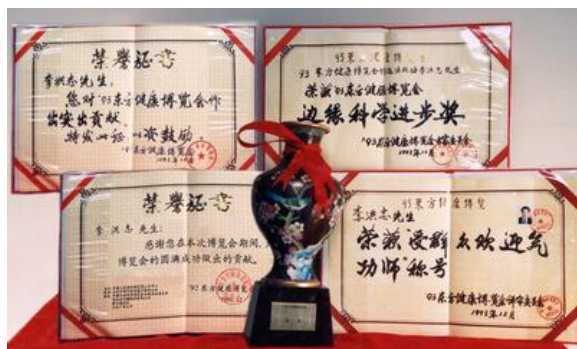 荣誉证书
李洪志先生:
您对'93东方健康博览会作
出突出贡献,
特发此证,以资鼓励。
'93东方健康博览会
1993年12月
93东方健康博览会
荣获'93东方健康博览会
边缘科学进步奖
'93东方健康博览会评审委员会
1993年12月
荣誉证书
李洪志先生:
感谢您在本次博览会期间,
博览会的圆满成功做出的贡献。
93东方健康博览
李洪志先生
荣获"受群众欢迎气
功师"称号
'93东方健康博览会评审委员会
1993年12月